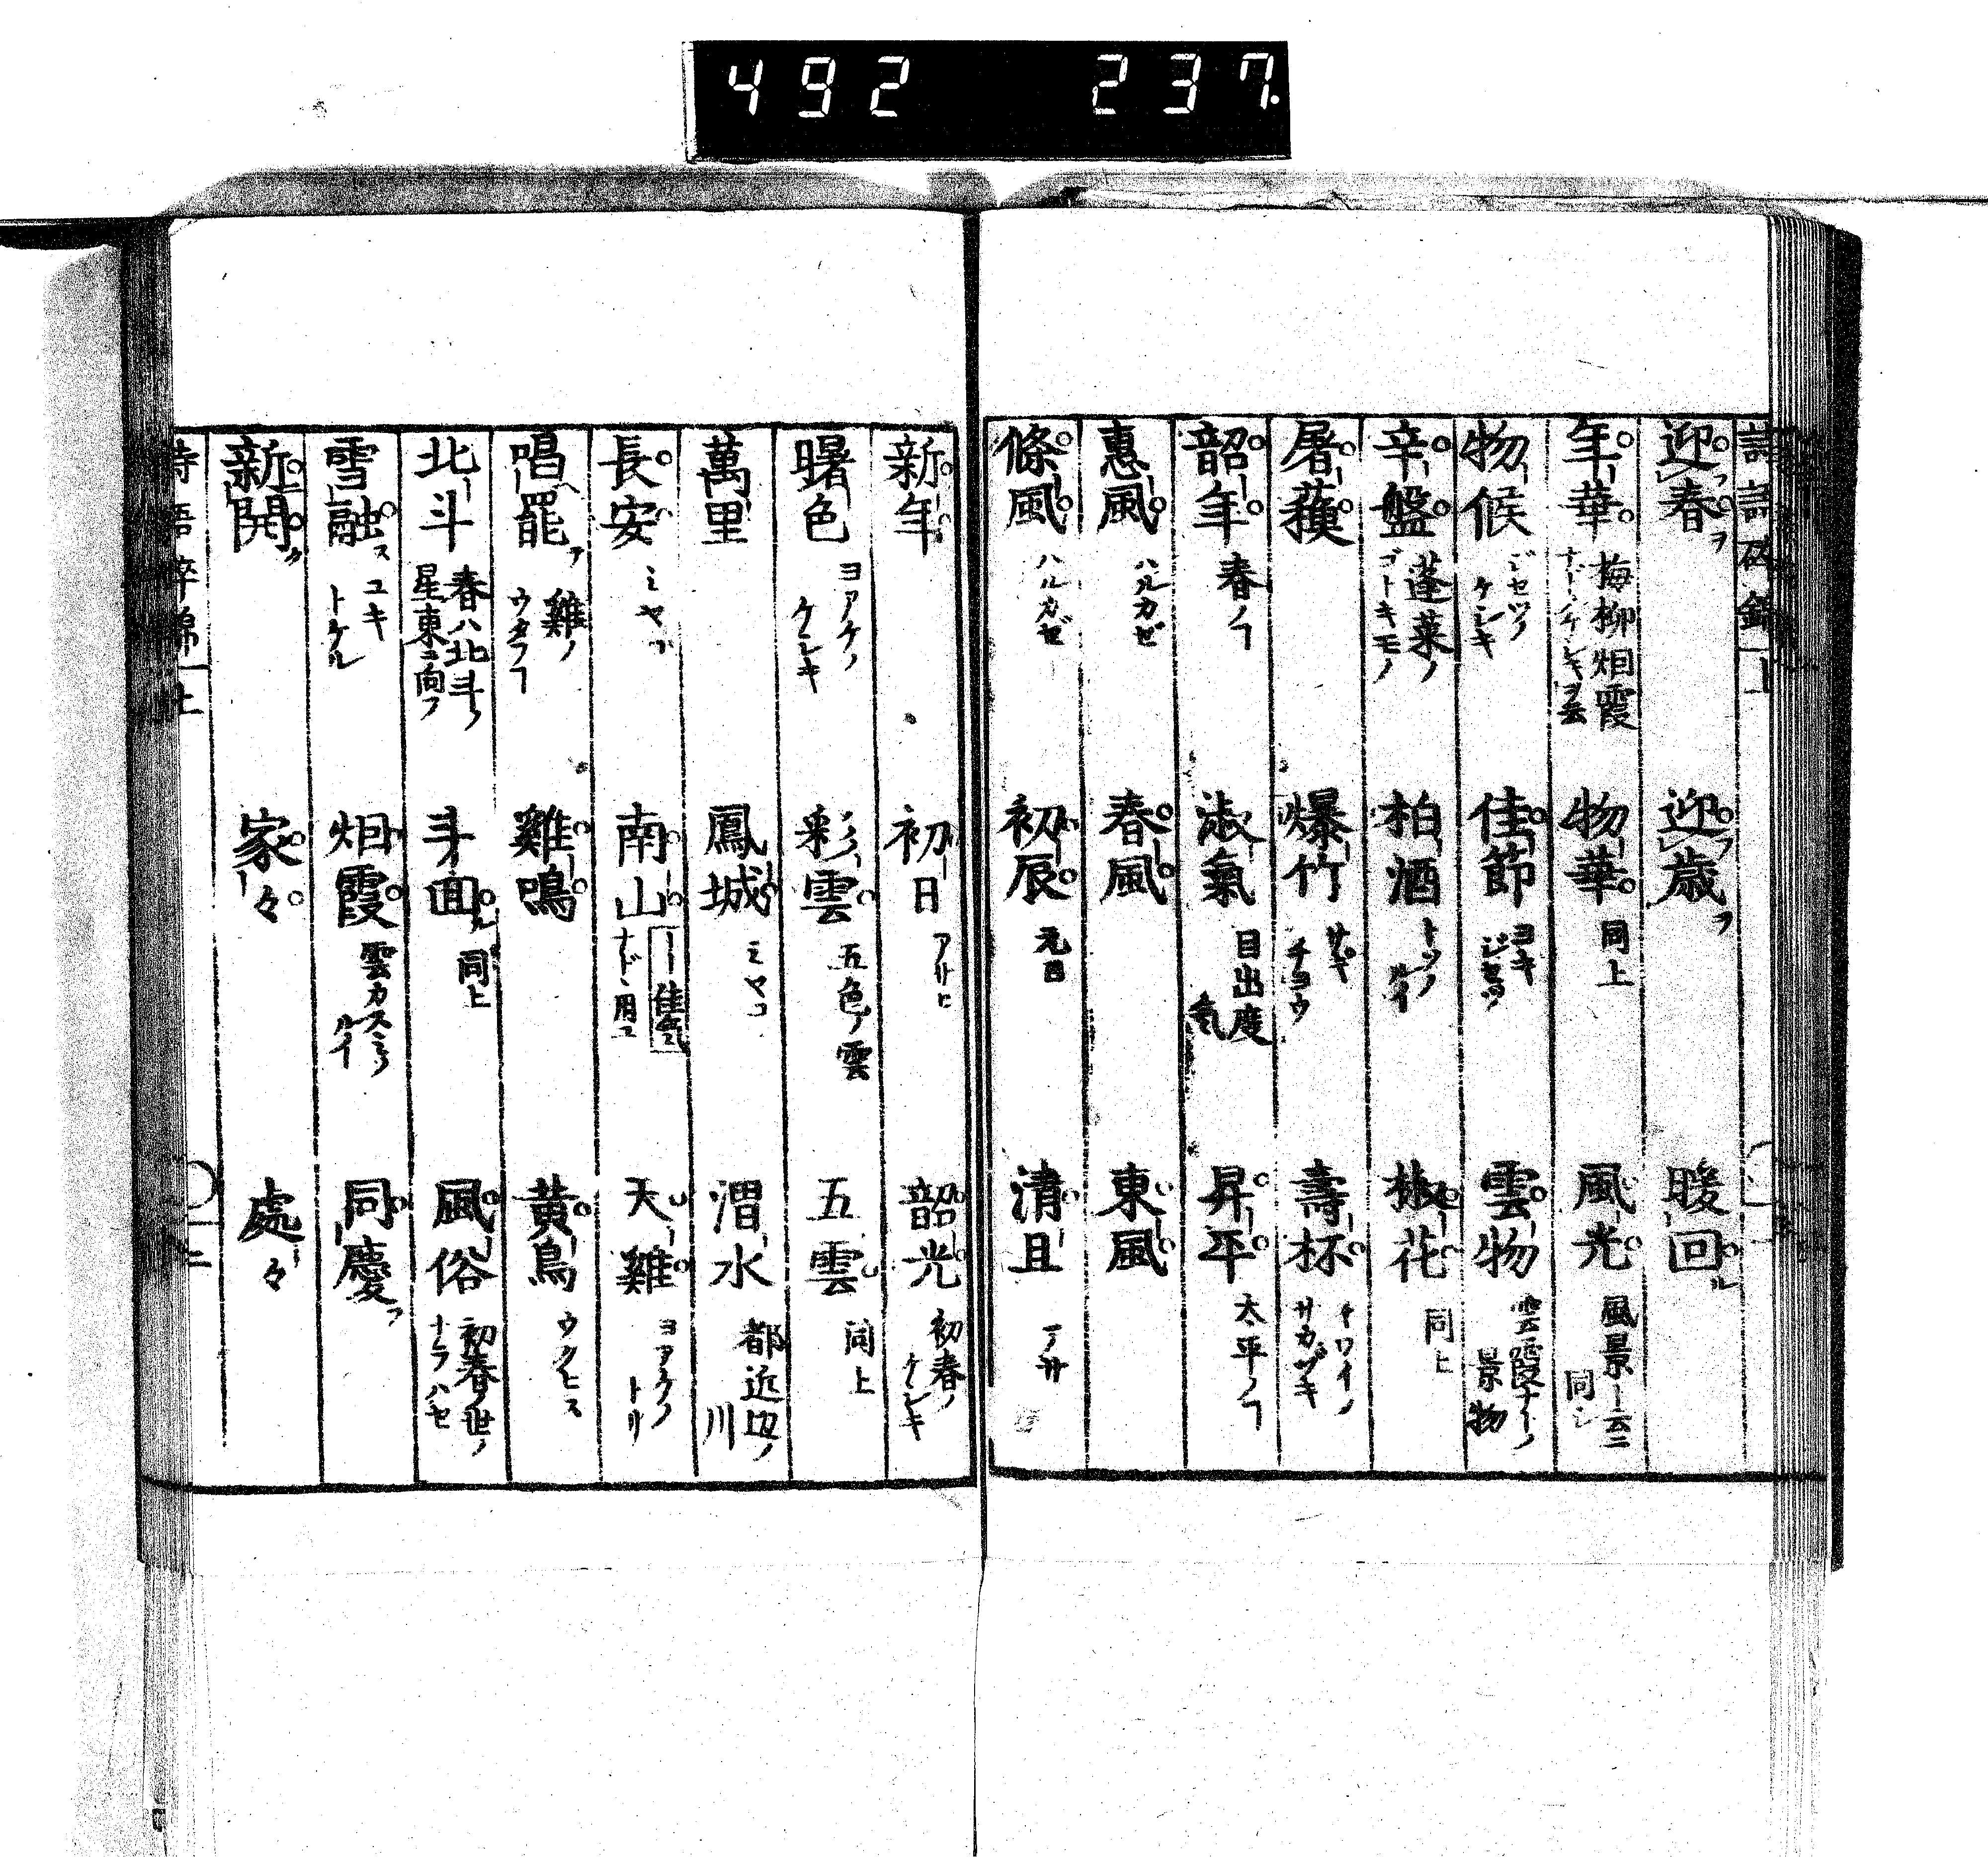 492 237.
迎フ春ヲ 迎フ歳ヲ 暖回ル
年華 梅柳烟霞ナドノケシキヲ云 物華 同上 風光 風景ト云ニ同シ
物候 ジセツノケシキ 佳節 ヨキジセツ 雲物 雲霞ナドノ景物
辛盤 蓬萊ノゴトキモノ 柏酒 トソノルイ 椒花 同上
屠蘓 爆竹 サギチヨウ 壽杯 イワイノサカヅキ
韶年 春ノヿ 淑氣 目出度氣 昇平 太平ノヿ
惠風 ハルカゼ 春風 東風
條風 ハルカゼ 初辰 元日 清且
新年 初日 アサヒ 韶光 初春ノケシキ
曙色 ヨアケノケシキ 彩雲 五色ノ雲 五雲 同上
萬里 鳳城 ミヤコ 渭水 都近辺ノ川
長安 ミヤコ 南山 ――佳氣ナド用ユ 天雞 ヨアケノトリ
唱罷ア 雞ノウタフヿ 雞鳴 黄鳥 ウクヒス
北斗 春ハ北斗ノ星東ニ向フ 斗回ル 同上 風俗 初春ノ世ノナラハセ
雪融ス ユキトケル 烟霞 雲カスミノルイ 同慶フ
新開ク 家々 處々